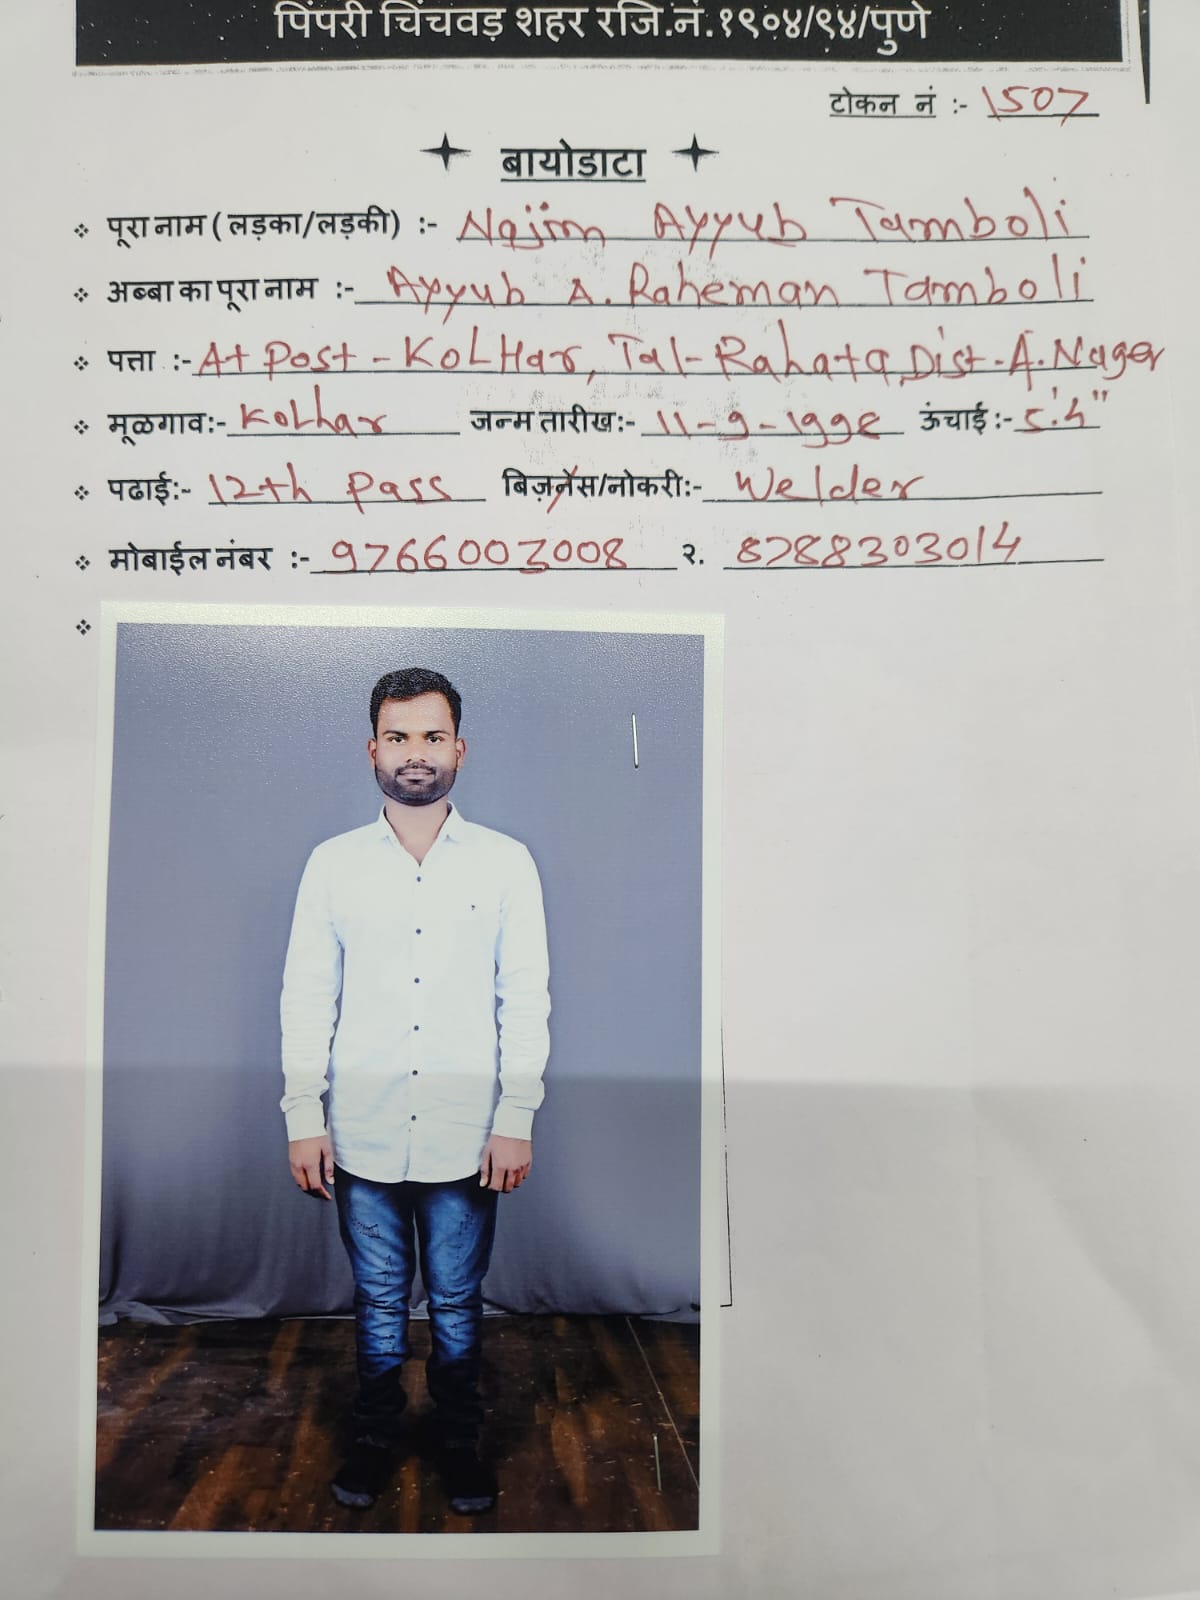 पिंपरी चिंचवड़ शहर रजि.नं.१९०४/९४/पुणे
टोकन नं :- 1507
बायोडाटा
पूरा नाम ( लड़का/लड़की) :- Najim Ayyub Tamboli
अब्बा का पूरा नाम :- Ayyub A. Raheman Tamboli
पत्ता :- At Post - KoLHar, Tal- Rahata, Dist - A. Nager
मूळगाव:- KoLhar जन्म तारीख:- 11-9-1998 ऊंचाई:- 5'.5"
पढाई:- 12th Pass बिज़नेस/नोकरी:- Welder
मोबाईल नंबर :- 9766003008 २. 8788303014